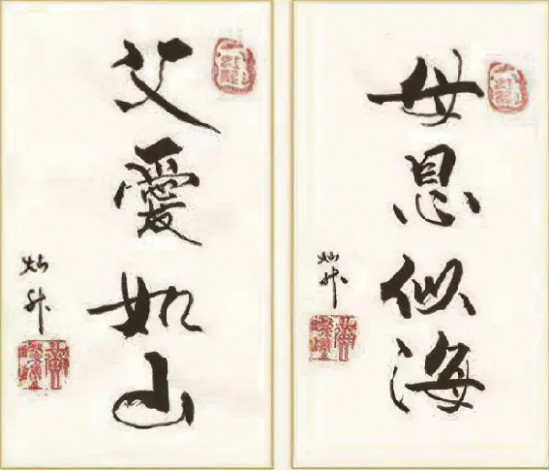 父愛如山
灿升
母恩似海
灿升